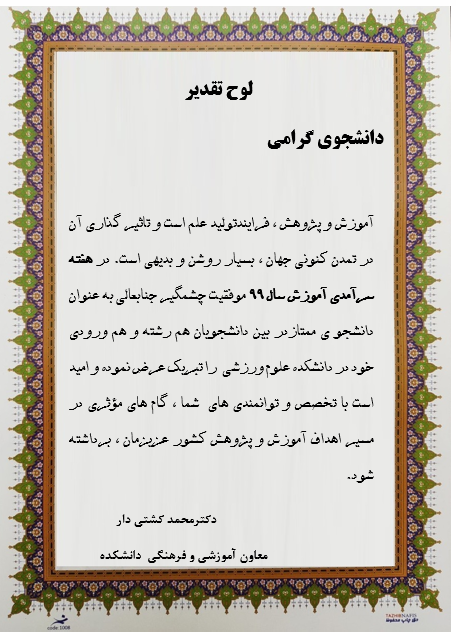 لوح تقدیر
دانشجوی گرامی
آموزش و پژوهش ، فرایندتولید علم است و تاثیر گذاری آن
در تمدن کنونی جهان ، بسیار روشن و بدیهی است. در هفته
سرآمدی آموزش سال ۹۹ موفقیت چشمگیر جنابعالی به عنوان
دانشجو ی ممتازدر بین دانشجویان هم رشته و هم ورودی
خود در دانشکده علوم ورزشی را تبریک عرض نموده و امید
است با تخصص و توانمندی های شما ، گام های مؤثری در
مسیر اهداف آموزش و پژوهش کشور عزیزمان ، برداشته
شود.
دکترمحمد کشتی دار
معاون آموزشی و فرهنگی دانشکده
code 1008
TAZHIBNAFIS
حق چاپ محفوظ